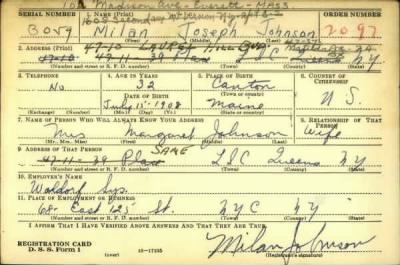 102 Madison Ave - Everett - MASS
SERIAL NUMBER 1. NAME (Print) ORDER NUMBER
Milan Joseph Johnson 2097
(First) (Middle) (Last)
2. ADDRESS (Print)
39 Place L I C Queens N Y
(Number and street or R. F. D. number) (Town) (County) (State)
3. TELEPHONE 4. AGE IN YEARS 5. PLACE OF BIRTH 6. COUNTRY OF CITIZENSHIP
No 32 Canton
DATE OF BIRTH (Town or county) U S.
July 15 1908 Maine
(Mo.) (Day) (Yr.) (State or country)
7. NAME OF PERSON WHO WILL ALWAYS KNOW YOUR ADDRESS 8. RELATIONSHIP OF THAT PERSON
Mrs Margaret Johnson Wife
(Mr., Mrs., Miss) (First) (Middle) (Last)
9. ADDRESS OF THAT PERSON SAME
47-11-39 Place L I C Queens N Y
(Number and street or R. F. D. number) (Town) (County) (State)
10. EMPLOYER'S NAME
Waldorf Sys.
11. PLACE OF EMPLOYMENT OR BUSINESS
68 East 125 St. NYC NY
(Number and street or R. F. D. number) (Town) (County) (State)
I AFFIRM THAT I HAVE VERIFIED ABOVE ANSWERS AND THAT THEY ARE TRUE.
REGISTRATION CARD
D. S. S. Form 1 (over) 16-17105 Milan Johnson